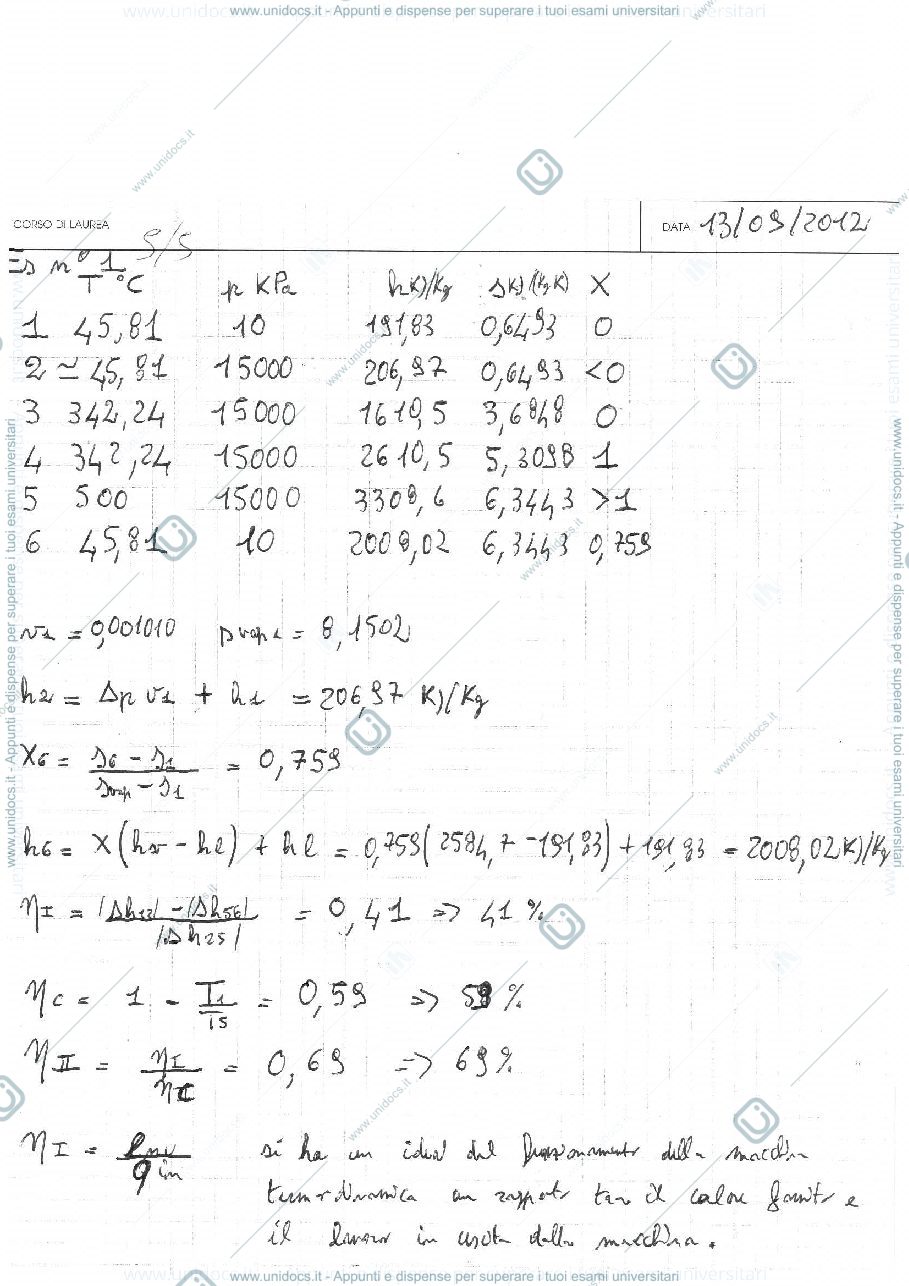 www.unidocs.it - Appunti e dispense per superare i tuoi esami universitari
CORSO DI LAUREA
DATA 13/09/2012
5/5
Es n° 1
T °C p KPa h KJ/Kg s KJ/(Kg K) X
1 45,81 10 191,83 0,6493 0
2 ≃ 45,81 15000 206,97 0,6493 <0
3 342,24 15000 1610,5 3,6848 0
4 342,24 15000 2610,5 5,3098 1
5 500 15000 3308,6 6,3443 >1
6 45,81 10 2008,02 6,3443 0,759
v1 = 0,001010 svap1 = 8,1502
h2 = Δp v1 + h1 = 206,97 KJ/Kg
X6 = (s6 - s1)/(svap - s1) = 0,759
h6 = X(hv - hl) + hl = 0,759(2584,7 - 191,83) + 191,83 = 2008,02 KJ/Kg
ηI = (|Δh12| - |Δh56|)/|Δh25| = 0,41 => 41 %
ηc = 1 - T1/T5 = 0,59 => 59 %
ηII = ηI/ηc = 0,69 => 69 %
ηI = / qin si ha un idea del funzionamento della macchina
termodinamica un rapporto tra il calore fornito e
il lavoro in uscita dalla macchina.
www.unidocs.it - Appunti e dispense per superare i tuoi esami universitari